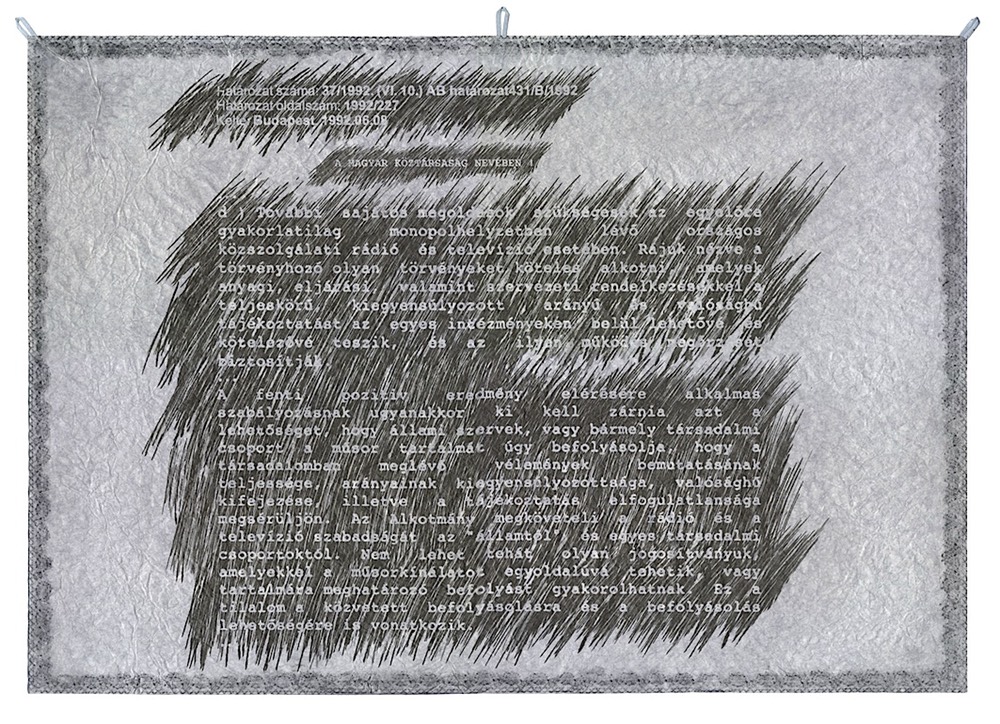 Határozat száma: 37/1992. (VI. 10.) AB határozat431/B/1992
Határozat oldalszám: 1992/227
Kelte: Budapest, 1992.06.08
A MAGYAR KÖZTÁRSASÁG NEVÉBEN !
d ) További sajátos megoldások szükségesek az egyelőre
gyakorlatilag monopolhelyzetben lévő országos
közszolgálati rádió és televízió esetében. Rájuk nézve a
törvényhozó olyan törvényeket köteles alkotni, amelyek
anyagi, eljárási, valamint szervezeti rendelkezésekkel a
teljeskörű, kiegyensúlyozott arányú és valósághű
tájékoztatást az egyes intézményeken belül lehetővé és
kötelezővé teszik, és az ilyen működés megőrzését
biztosítják.
...
A fenti pozitív eredmény elérésére alkalmas
szabályozásnak ugyanakkor ki kell zárnia azt a
lehetőséget, hogy állami szervek, vagy bármely társadalmi
csoport a műsor tartalmát úgy befolyásolja, hogy a
társadalomban meglévő vélemények bemutatásának
teljessége, arányainak kiegyensúlyozottsága, valósághű
kifejezése, illetve a tájékoztatás elfogulatlansága
megsérüljön. Az Alkotmány megköveteli a rádió és a
televízió szabadságát az "államtól" és egyes társadalmi
csoportoktól. Nem lehet tehát olyan jogosítványuk,
amelyekkel a műsorkínálatot egyoldalúvá tehetik, vagy
tartalmára meghatározó befolyást gyakorolhatnak. Ez a
tilalom a közvetett befolyásolásra és a befolyásolás
lehetőségére is vonatkozik.